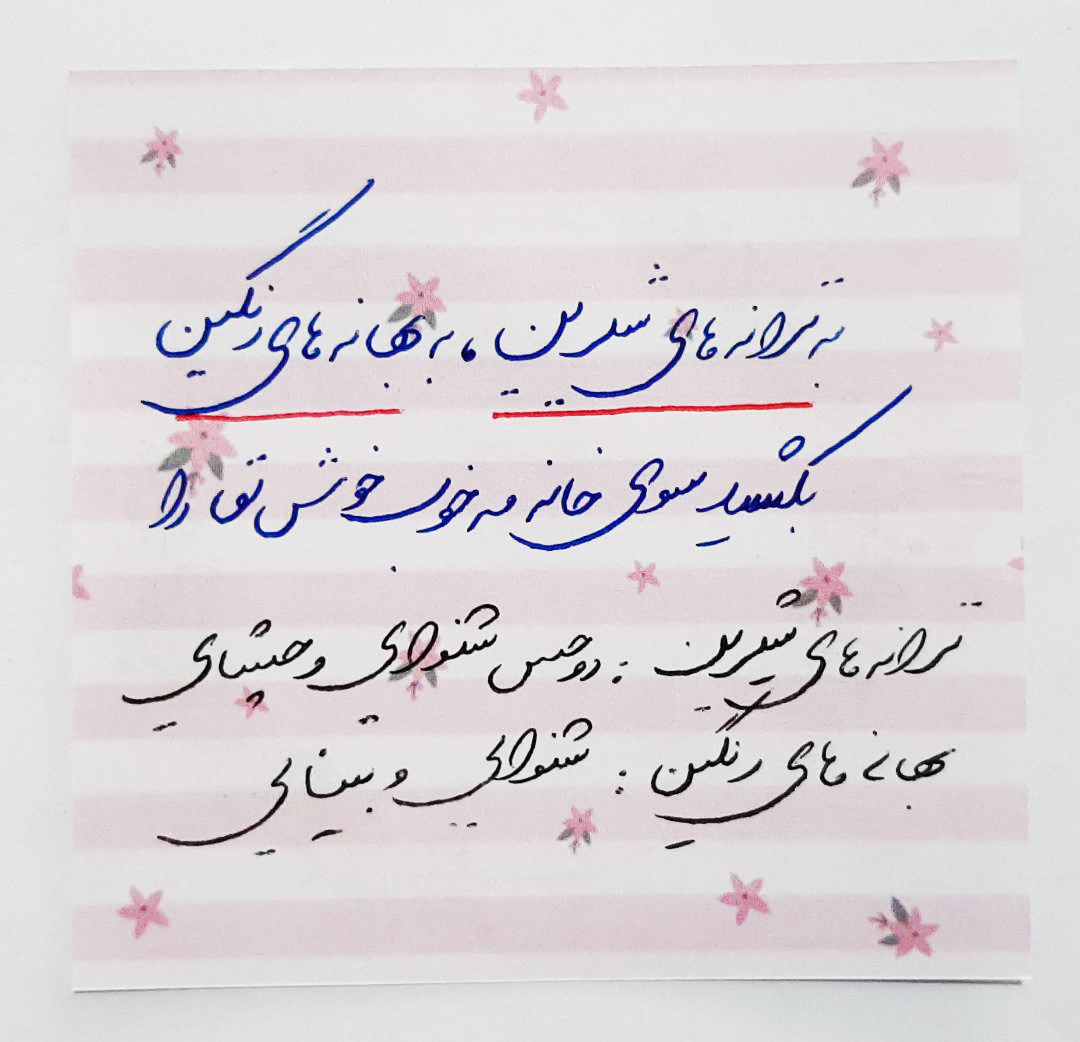 به ترانه های شیرین ، به بهانه های رنگین
بکشید سوی خانه مه خوب خوش لقا را
ترانه های شیرین : دو حس شنوایی و چشایی
بهانه های رنگین : شنوایی و بینایی